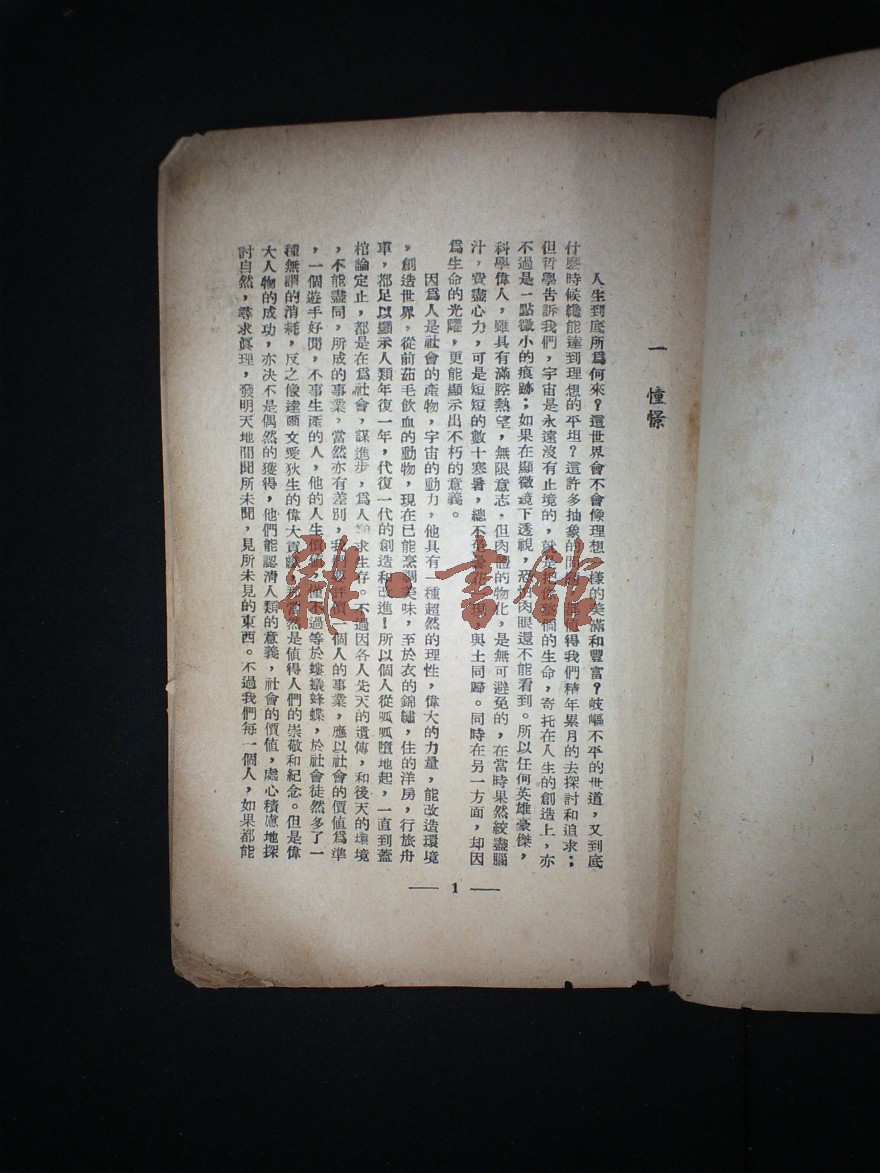 一 憧憬
人生到底所爲何來?這世界會不會像理想一樣的美滿和豐富?岐嶇不平的世道,又到底
什麼時候纔能達到理想的平坦?這許多抽象的問題,得我們積年累月的去探討和追求;
但哲學告訴我們,宇宙是永遠沒有止境的,就是把你整個的生命,寄托在人生的創造上,亦
不過是一點微小的痕跡;如果在顯微鏡下透視,恐怕肉眼還不能看到。所以任何英雄豪傑,
科學偉人,雖具有滿腔熱望,無限意志,但肉體的物化,是無可避免的,在當時果然絞盡腦
汁,費盡心力,可是短短的數十寒暑,總不免曇花一現,與土同歸。同時在另一方面,却因
爲生命的光躍,更能顯示出不朽的意義。
因爲人是社會的產物,宇宙的動力,他具有一種超然的理性,偉大的力量,能改造環境
,創造世界,從前茹毛飲血的動物,現在已能烹調美味,至於衣的錦繡,住的洋房,行旅舟
車,都足以顯示人類年復一年,代復一代的創造和改進!所以個人從呱呱墮地起,一直到蓋
棺論定止,都是在爲社會,謀進步,爲人類求生存。不過因各人先天的遺傳,和後天的環境
,不能盡同,所成的事業,當然亦有差別,我們要評價一個人的事業,應以社會的價值爲準
,一個遊手好閒,不事生產的人,他的人生價值,僅不過等於螻蟻蜂蝶,於社會徒然多了一
種無謂的消耗,反之像達爾文愛狄生的偉大貢獻,那當然是值得人們的崇敬和紀念。但是偉
大人物的成功,亦決不是偶然的獲得,他們能認清人類的意義,社會的價值,處心積慮地探
討自然,尋求眞理,發明天地間聞所未聞,見所未見的東西。不過我們每一個人,如果都能
— 1 —
雜·書館